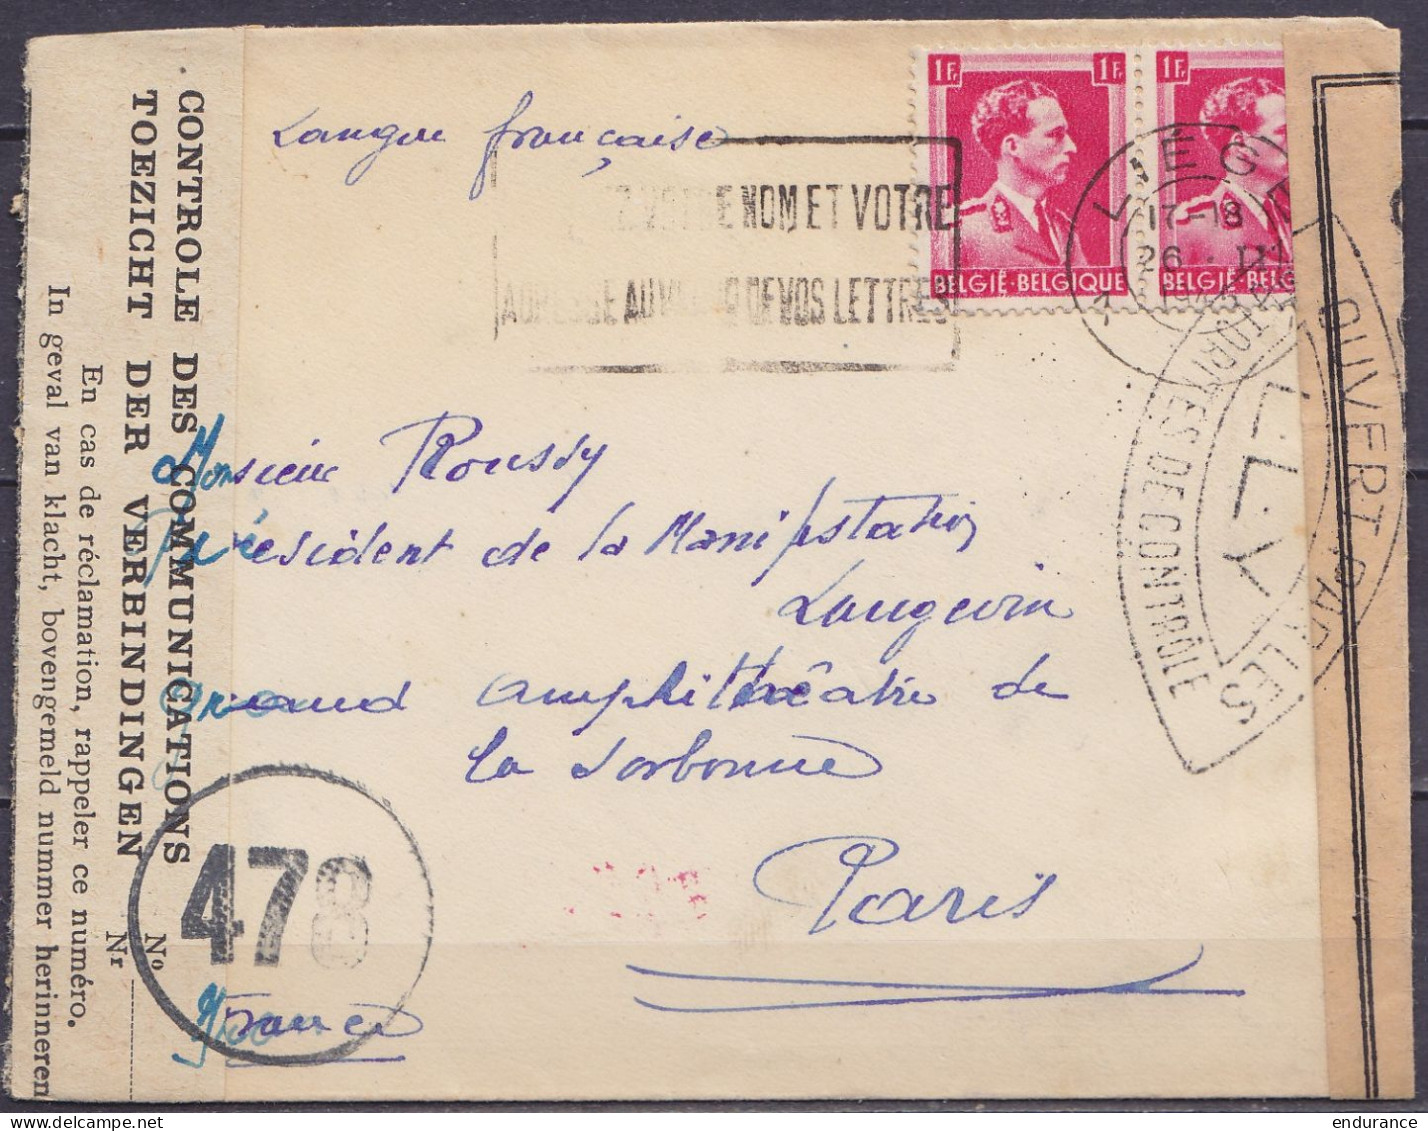 CONTROLE DES COMMUNICATIONS
TOEZICHT DER VERBINDINGEN
No
Nr
En cas de réclamation, rappeler ce numéro.
In geval van klacht, bovengemeld nummer herinneren
Langue française
VOTRE NOM ET VOTRE
ADRESSE AU DE VOS LETTRES
1F. 1F.
BELGIË-BELGIQUE
1F.
BELGIË-BELG
LIÈGE 1
17-18
26
Monsieur Roussy
Président de la Manifestation
Langevin
grand amphithéatre de
la Sorbonne
Paris
France
478
OUVERT PAR LES
AUTORITÉS DE CONTRÔLE
endurance